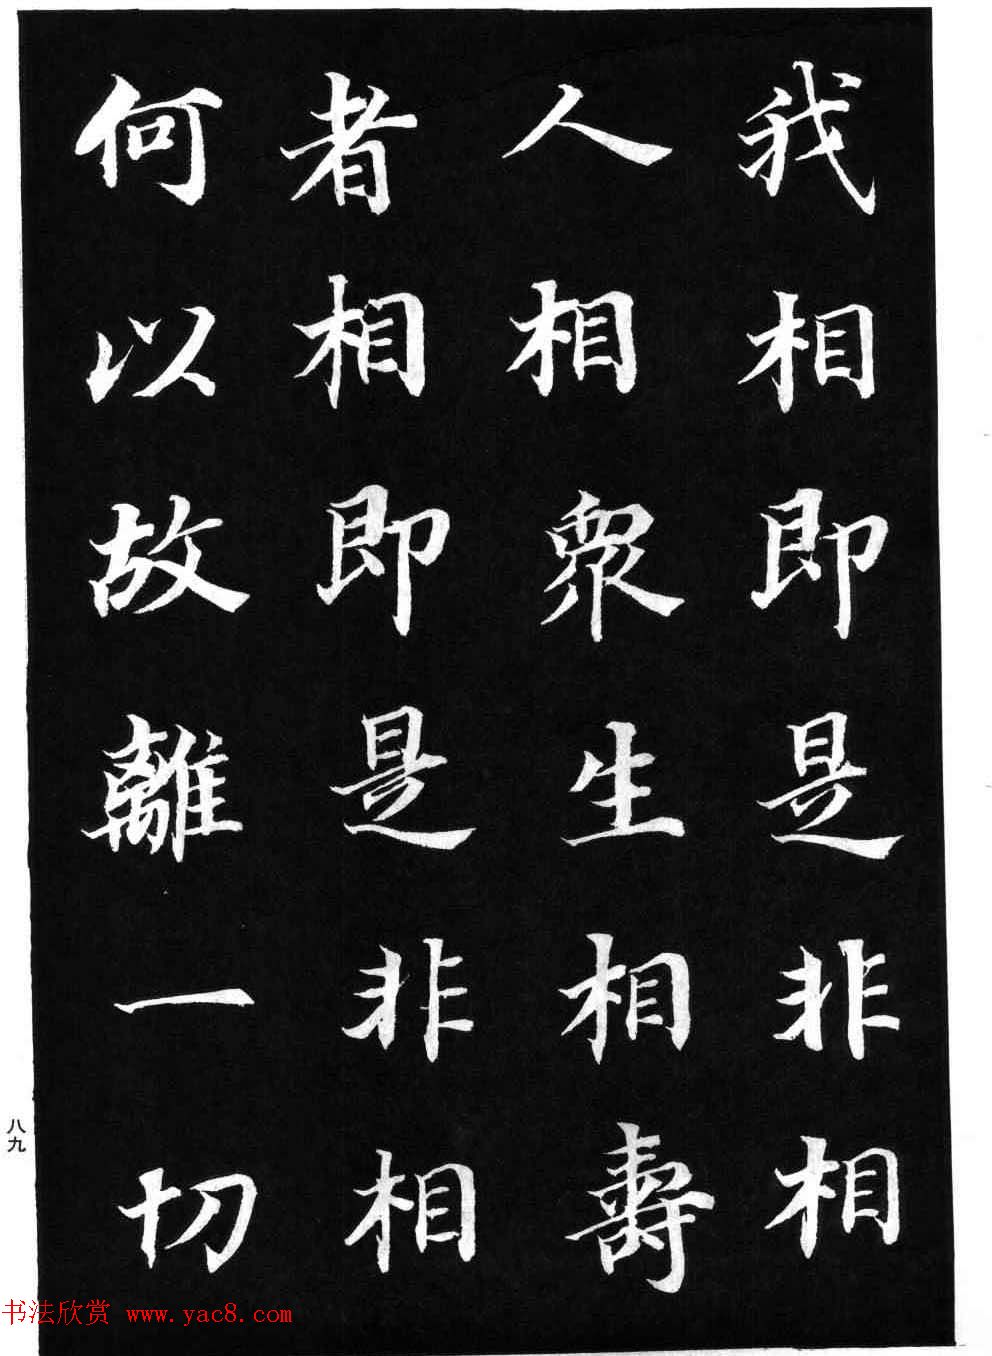 我相即是非相
人相衆生相壽
者相即是非相
何以故離一切
八九
书法欣赏 www.yac8.com